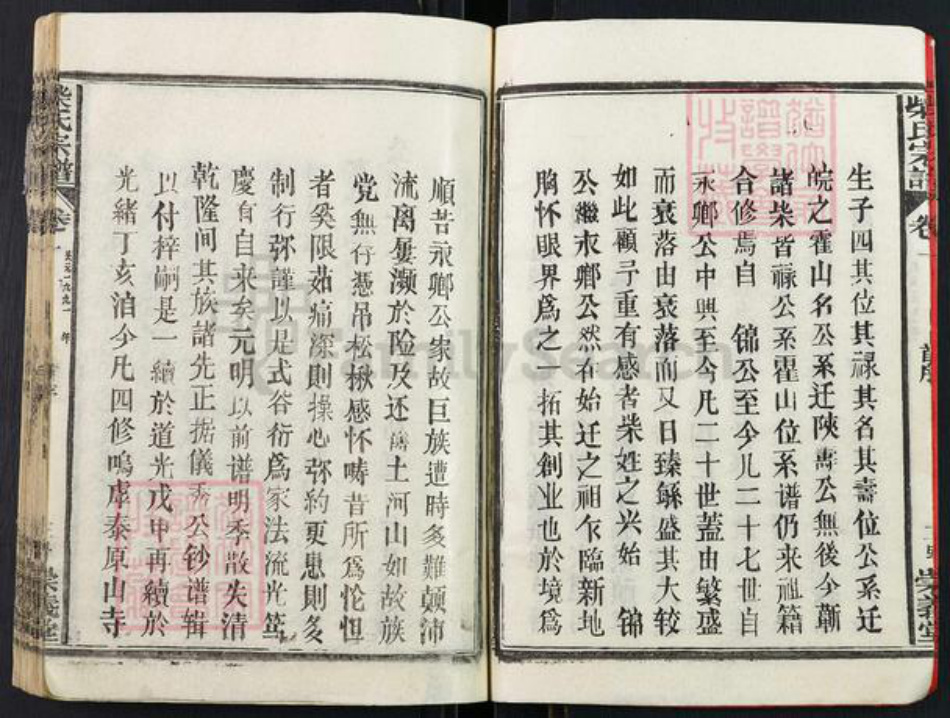 柴氏宗譜
卷一
首序
崇義堂
生子四其位其禄其名其壽位公系迁
皖之霍山名公系迁陝壽公無後今蘄
諸柴皆禄公系霍山位系谱仍来祖籍
合修焉自 锦公至今凡二十七世自
永鄉公中興至今凡二十世蓋由繁盛
而衰落由衰落而又日臻繇盛其大较
如此顧予重有感者柴姓之兴始 锦
公繼永鄉公然在始迁之祖乍臨新地
胸怀眼界爲之一拓其創业也於境爲
順若永鄉公家故巨族遭時多難颠沛
流离屡濒於险及还 土河山如故族
党無存憑吊松楸感怀畴昔所爲怆怛
者奚限茹痛深則操心弥約更患則多
制行弥謹以是式谷衍爲家法流光笃
慶有自来矣元明以前谱明季散失清
乾隆间其族諸先正据儀秀公钞谱辑
以付梓嗣是一續於道光戊申再續於
光緒丁亥洎今凡四修嗚虖泰原山寺
柴氏宗譜
卷一
公元一九九一年
崇義堂
FamilySearch